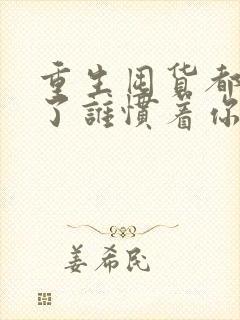 重生囤货都
了誰慣着你
姜希民